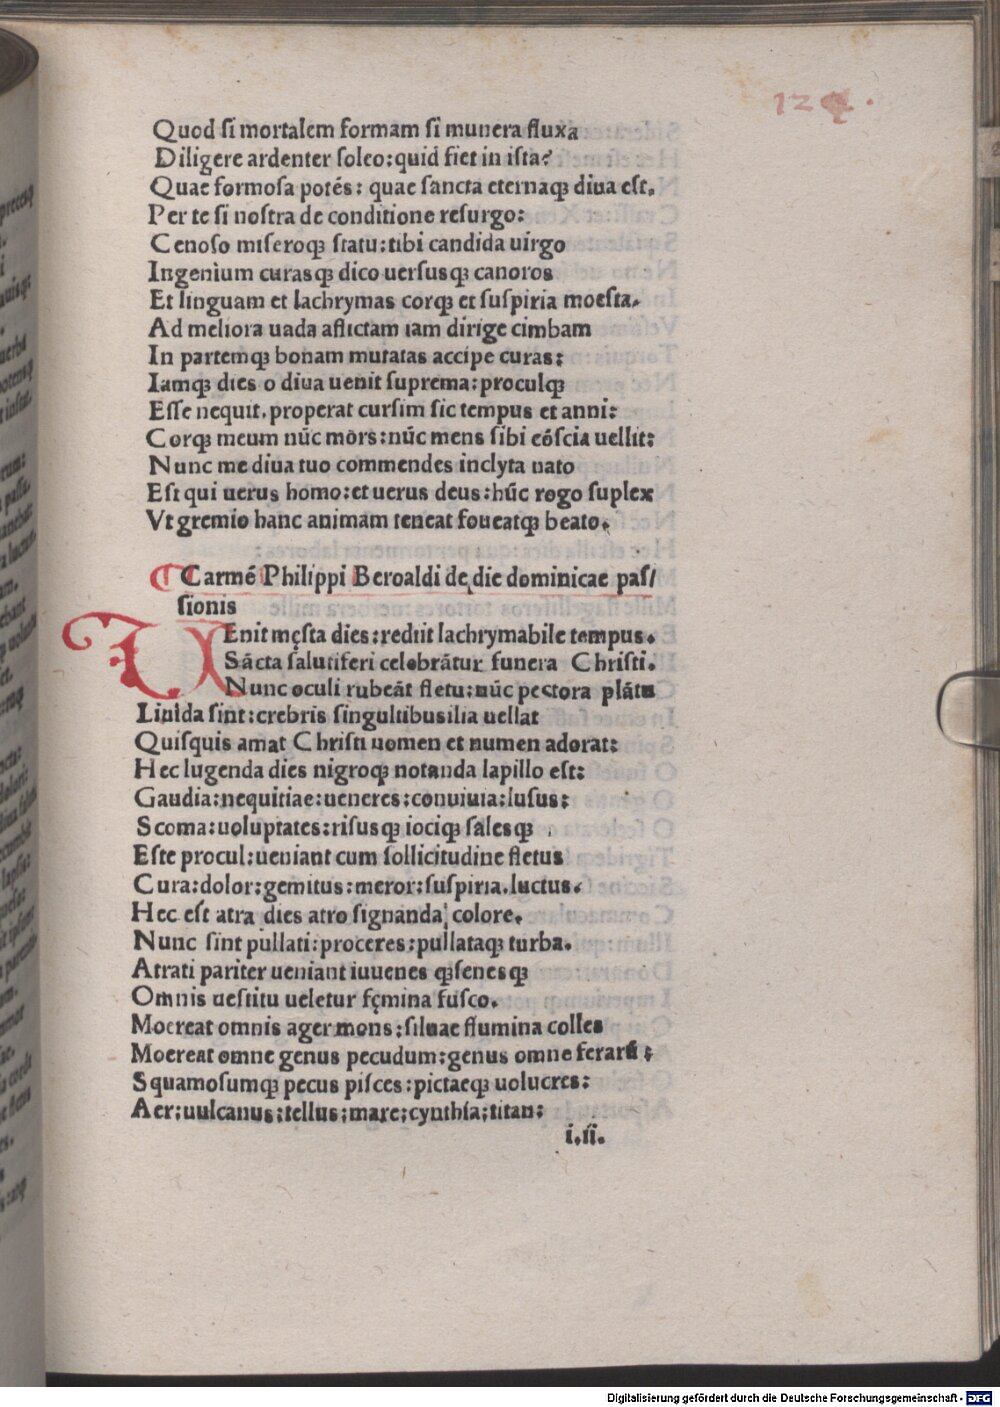 124.
Quod si mortalem formam si munera fluxa
Diligere ardenter soleo: quid fiet in ista?
Quae formosa potés: quae sancta eternaqꝫ diua est.
Per te si nostra de conditione resurgo:
Cenoso miseroqꝫ statu: tibi candida uirgo
Ingenium curasqꝫ dico uersusqꝫ canoros
Et linguam et lachrymas corqꝫ et suspiria moesta.
Ad meliora uada aflictam iam dirige cimbam
In partemqꝫ bonam mutatas accipe curas:
Iamqꝫ dies o diua uenit suprema: proculqꝫ
Esse nequit. properat cursim sic tempus et anni:
Corqꝫ meum nūc mors: nūc mens sibi cōscia uellit:
Nunc me diua tuo commendes inclyta nato
Est qui uerus homo: et uerus deus: hūc rogo suplex
Vt gremio hanc animam teneat foueatqꝫ beato.
Carmē Philippi Beroaldi de die dominicae pas/
sionis
UEnit męsta dies: rediit lachrymabile tempus.
Sācta salutiferi celebrātur funera Christi.
Nunc oculi rubeāt fletu: nūc pectora plātu
Liuida sint: crebris singultibus ilia uellat
Quisquis amat Christi nomen et numen adorat:
Hec lugenda dies nigroqꝫ notanda lapillo est:
Gaudia: nequitiae: ueneres: conuiuia: lusus:
Scoma: uoluptates: risusqꝫ iociqꝫ salesqꝫ
Este procul: ueniant cum sollicitudine fletus
Cura: dolor: gemitus: meror: suspiria. luctus.
Hec est atra dies atro signanda colore.
Nunc sint pullati: proceres: pullataqꝫ turba.
Atrati pariter ueniant iuuenes qꝫ senesqꝫ
Omnis uestitu ueletur fęmina fusco.
Moereat omnis ager mons: siluae flumina colles
Moereat omne genus pecudum: genus omne ferarū:
Squamosumqꝫ pecus pisces: pictaeqꝫ uolucres:
Aer: uulcanus: tellus: mare: cynthia: titan:
i.ii.
Digitalisierung gefördert durch die Deutsche Forschungsgemeinschaft - DFG